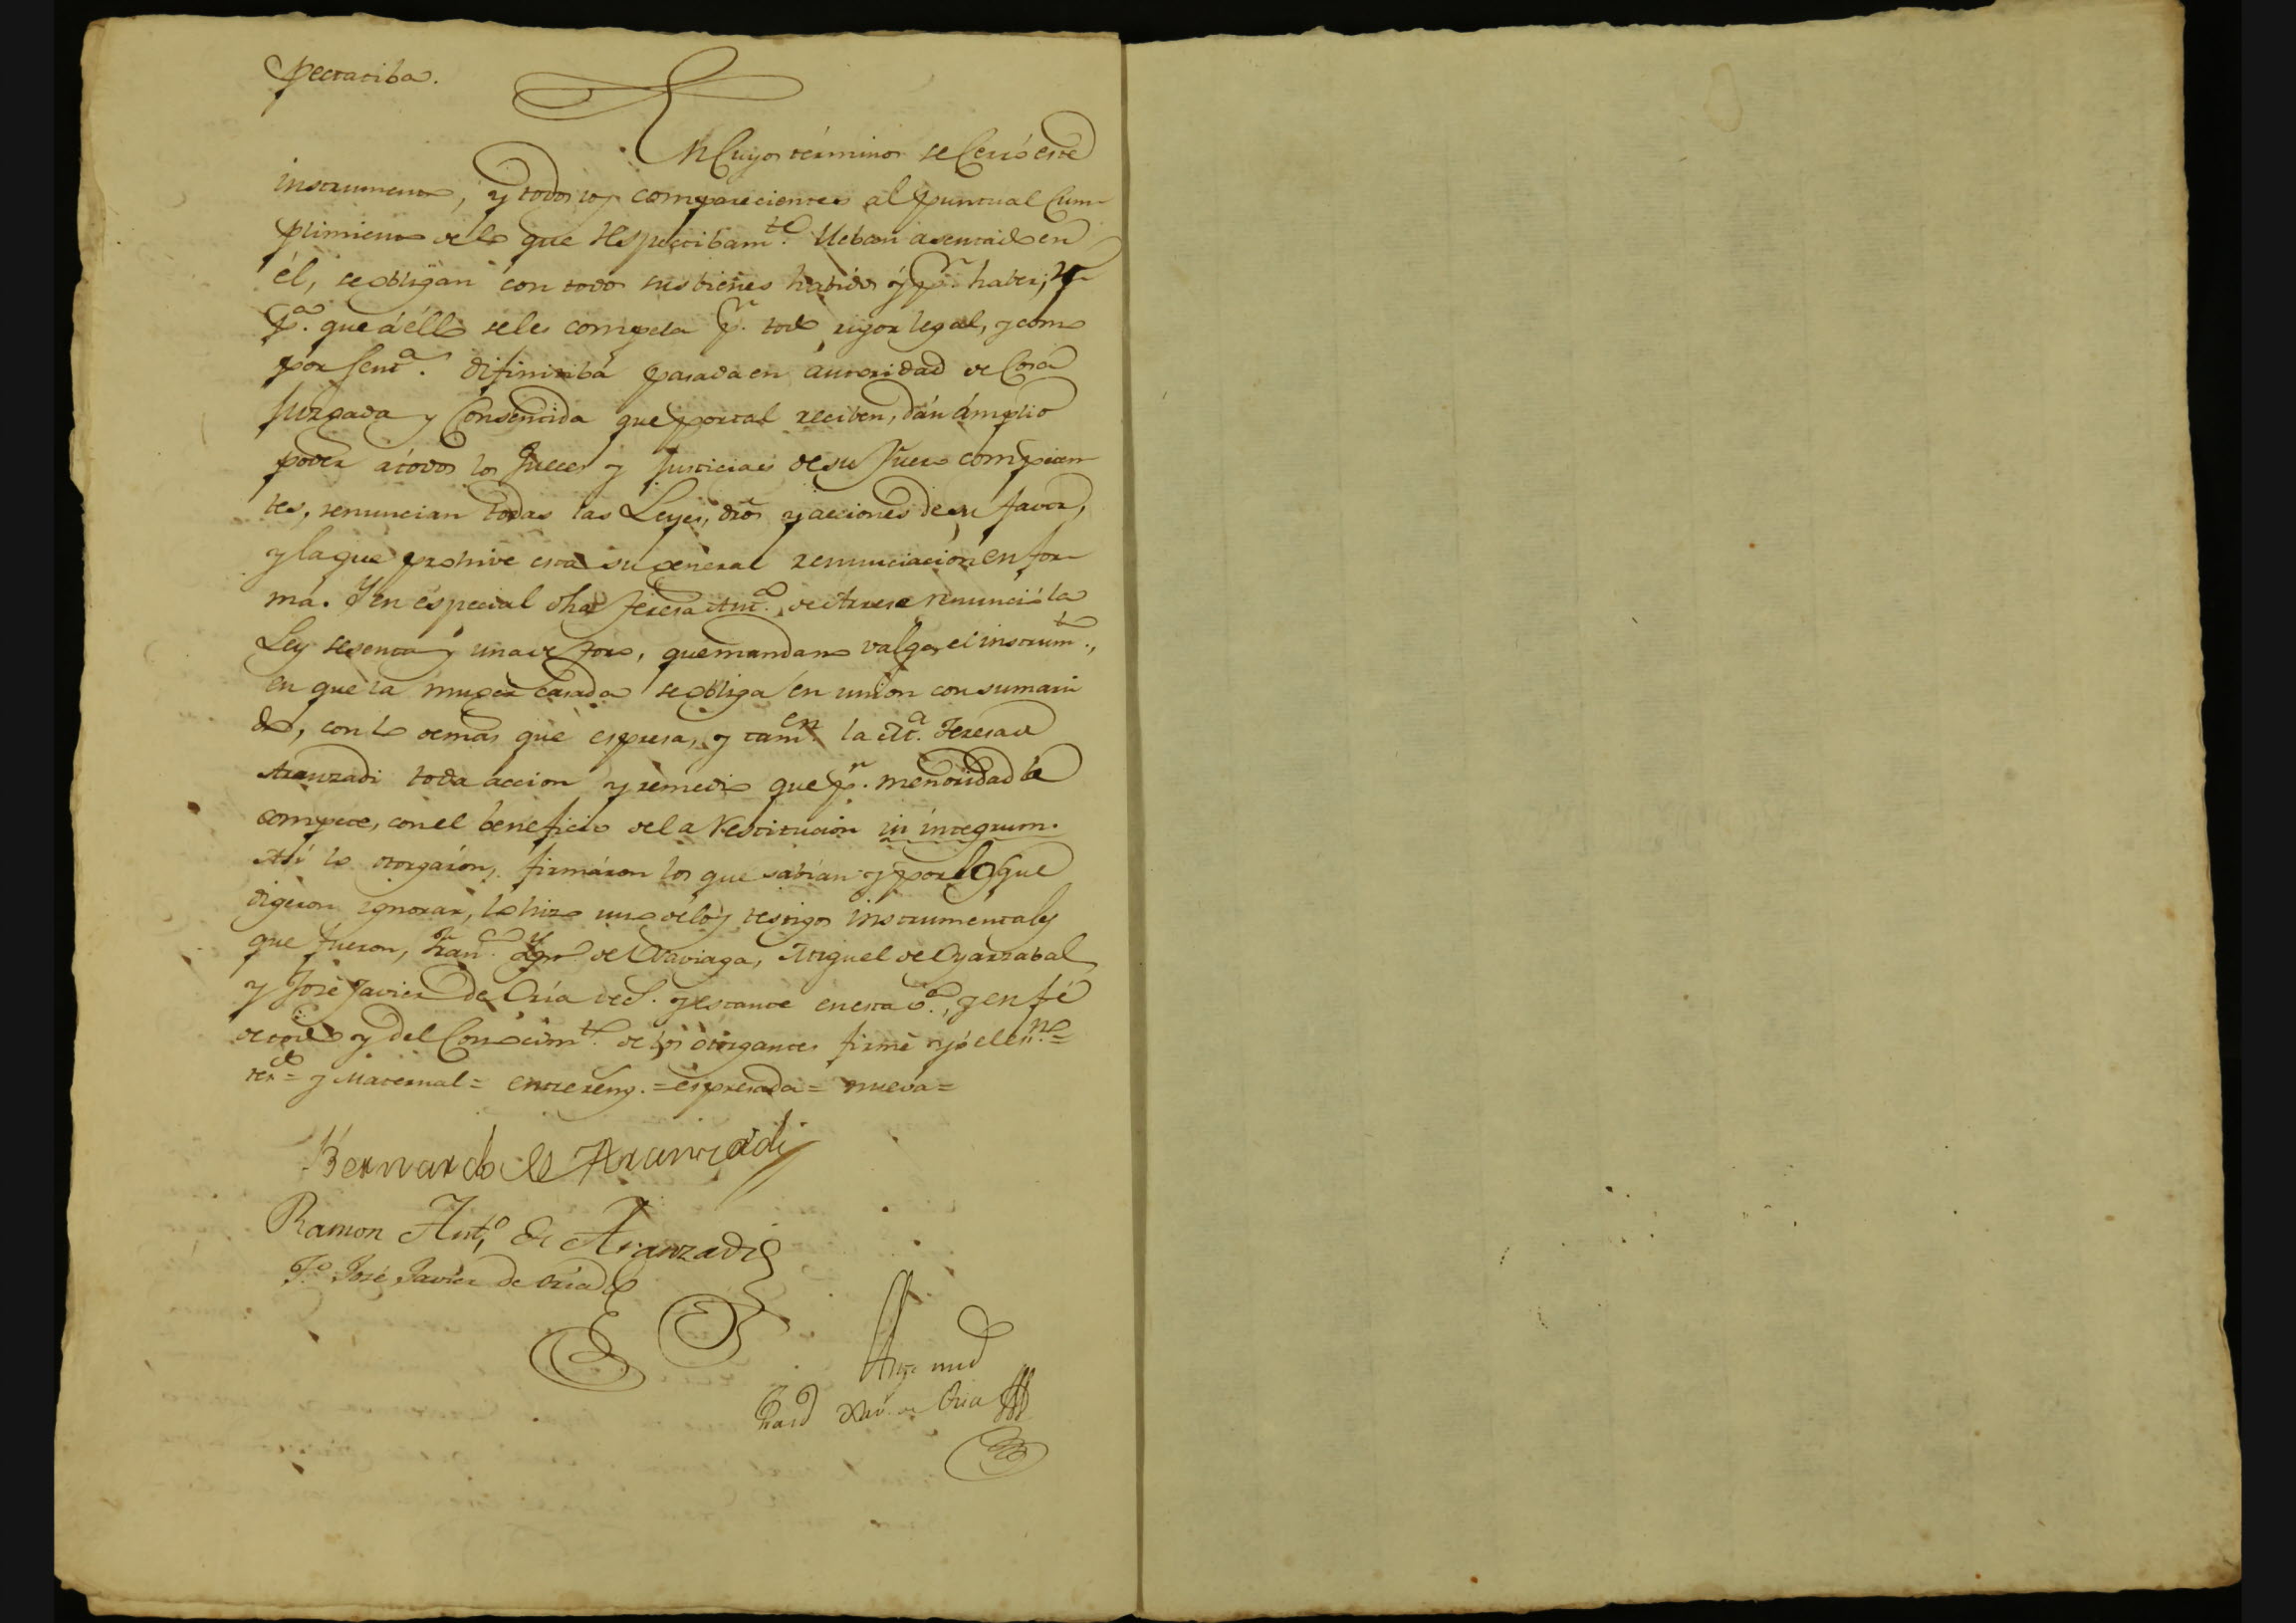 pectatiba.
En Cuyos términos se Cerró este
instrumento, y todos los comparecientes al puntual Cum-
plimiento de lo que respectibam.te lleban asentado en
él, se obligan con todos sus bienes habidos y p.r haber, y
p.a que á éllo se les compela p.r todo rigor legal, y como
por Sent.a difinitiba pasada en autoridad de Cosa
Juzgada y Consentida que portal reciben, dán ámplio
poder a todos los Jueces y Justicias de su fuero competen-
tes, renuncian todas las Leyes, dros y acciones de su favor,
y la que prohive esta su general renunciacion en for-
ma. Y en especial dha Teresa Ant.a de renunció la
Ley sesenta y una de toro, que mandano valga el instrum.to,
en que la muger casada se obliga en union con su mari
do, con lo demas que espresa, y tam.en la M.a Teresa de
Aranzadi toda accion y remedio que p.r menoridad le
compete, con el beneficio de la restitucion in integrum.
Asi lo otorgaron, firmáron los que sabian y por los que
digeron ignorar, lo hizo uno de los testigos instrumentales
que fueron, Fran.co Ign.o de Miguel de Oyarzabal
y José Javier de Oria vec.s y estante en esta v.a, y en fé
de todo y del Conocim.to de los otorgantes firmé yo el en.no =
= y Maternal = entrereng. = espresada = nueva =
Bernardo de Aranzadi
Ramon Ant.o de Aranzadi
T.o José Javier de Oria
Ante mi
Fran.co Xav.r de Oria